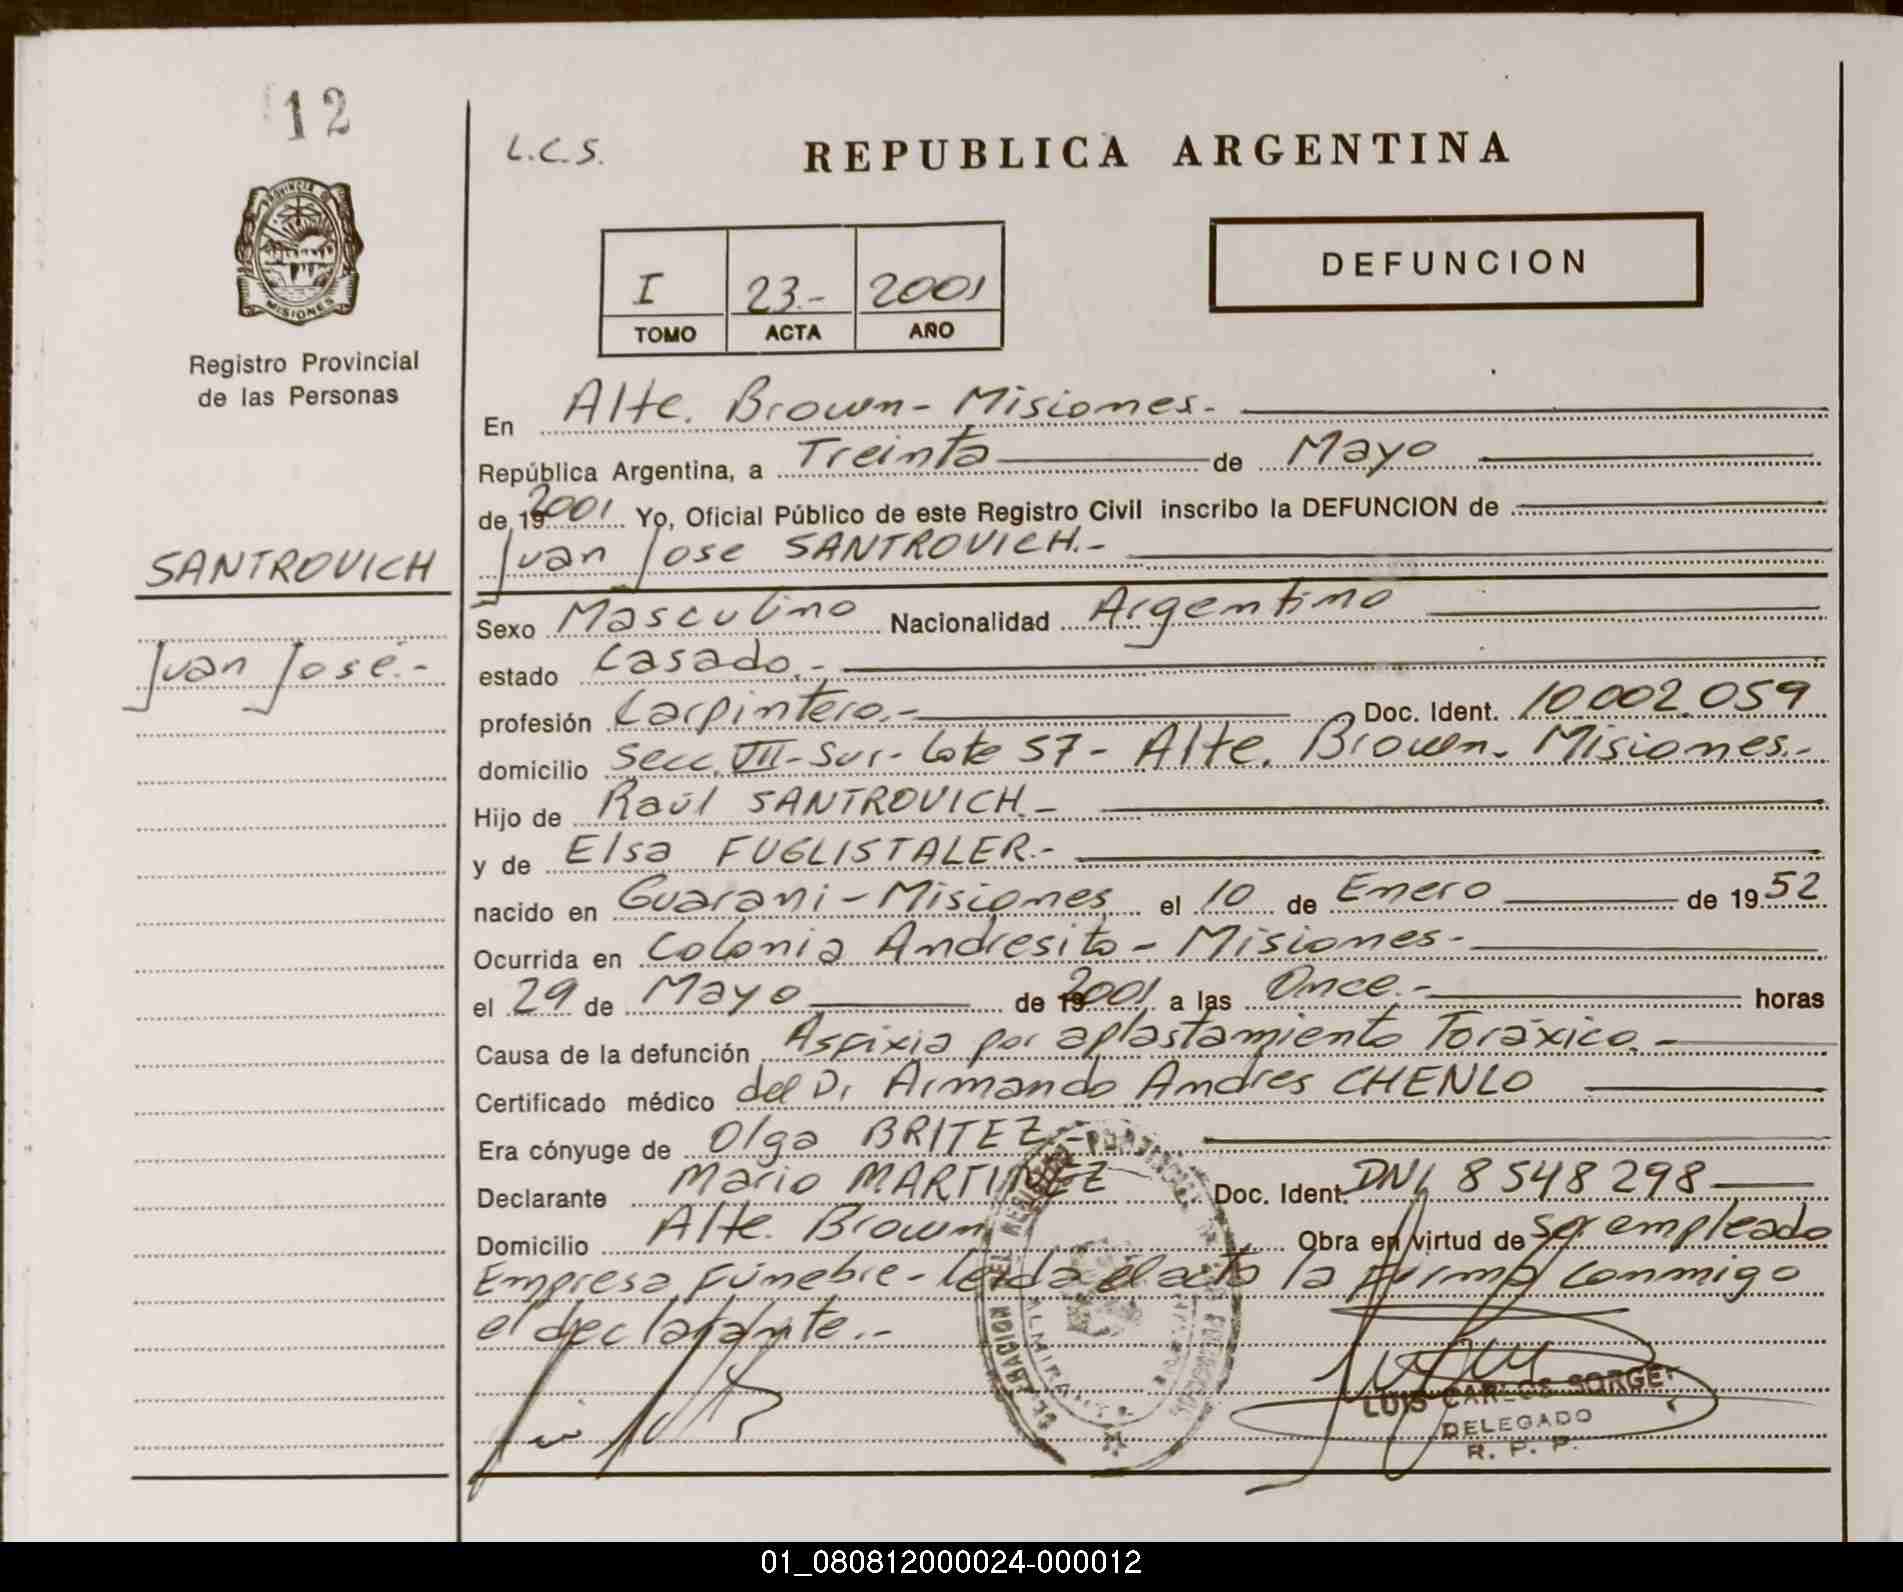 12
L.C.S.
REPUBLICA ARGENTINA
PROVINCIA DE
MISIONES
Registro Provincial
de las Personas
I 23.- 2001
TOMO ACTA AÑO
DEFUNCION
En Alte. Brown - Misiones.-
República Argentina, a Treinta de Mayo
de 19 2001 Yo, Oficial Público de este Registro Civil inscribo la DEFUNCION de
Juan Jose SANTROVICH.-
SANTROVICH
Juan José.-
Sexo Masculino Nacionalidad Argentino
estado Casado.-
profesión Carpintero.- Doc. Ident. 10.002.059
domicilio Secc. VII - Sur - Lote 57 - Alte. Brown - Misiones.-
Hijo de Raúl SANTROVICH.-
y de Elsa FUGLISTALER.-
nacido en Guarani - Misiones el 10 de Enero de 1952
Ocurrida en Colonia Andresito - Misiones -
el 29 de Mayo de 19 2001 a las Once.- horas
Causa de la defunción Asfixia por aplastamiento Toráxico.-
Certificado médico del Dr Armando Andres CHENLO
Era cónyuge de Olga BRITEZ.-
Declarante Mario MARTINEZ Doc. Ident. DNI 8548298
Domicilio Alte. Brown Obra en virtud de ser empleado
Empresa Fúnebre - leida el acta la firma conmigo
el declarante.-
LUIS CARLOS SORGE
DELEGADO
R. P. P.
01_080812000024-000012